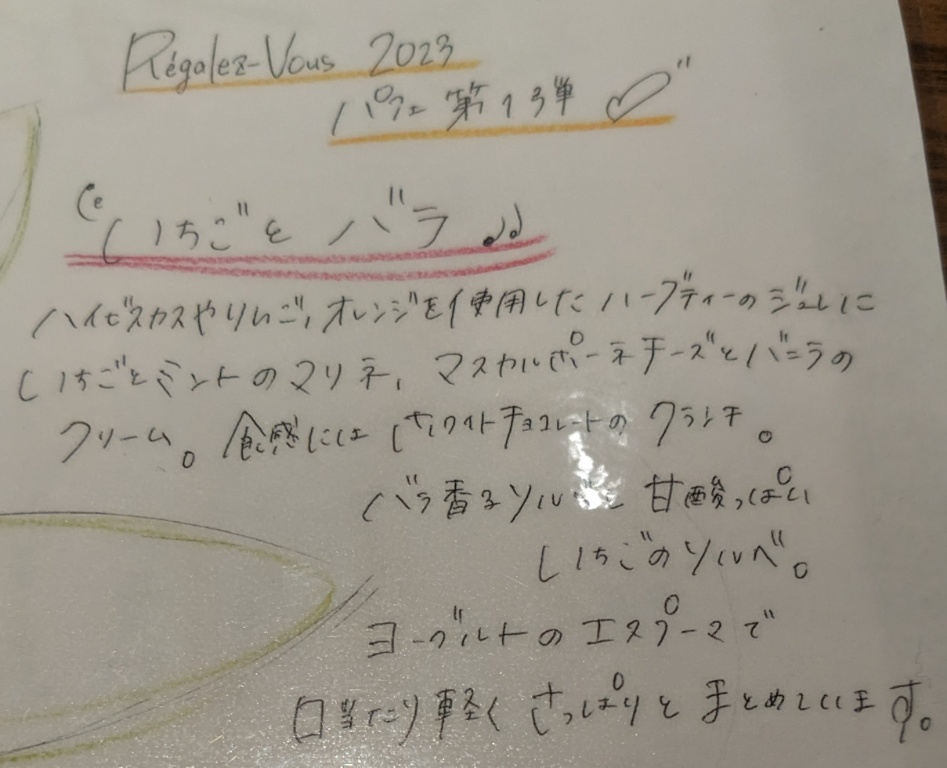 Régalez-Vous 2023
パフェ 第13弾 ♡"
"いちごと バラ ♪♪
ハイビスカスやりんご、オレンジを使用したハーブティーのジュレに
いちごとミントのマリネ、マスカルポーネチーズとバニラの
クリーム。食感にはホワイトチョコレートのクランチ。
バラ香るソルベと甘酸っぱい
いちごのソルベ。
ヨーグルトのエスプーマで
口当たり軽くさっぱりとまとめています。